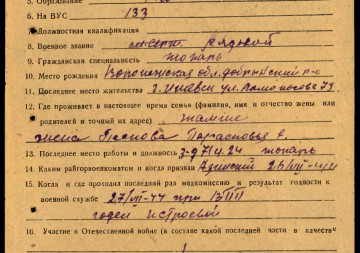 5. Образование
6. На ВУС 133
7. Должностная квалификация
8. Военное звание рядовой
9. Гражданская специальность токарь
10. Место рождения Воронежская обл. Добринский р-о
11. Последнее место жительства г. Ижевск ул. Ломоносова 79
12. Где проживает в настоящее время семья (фамилия, имя и отчество жены или
родителей и точный их адрес) там же
жена
13. Последнее место работы и должность з-д 71 ц. 24 токарь
14. Каким райгорвоенкоматом и когда призван Азинский 26/VII-44
15. Когда и где проходил последний раз медкомиссию и результат годности к
военной службе 27/VII-44 при
годен к строевой
16. Участие в Отечественной войне (в составе какой последней части в качестве